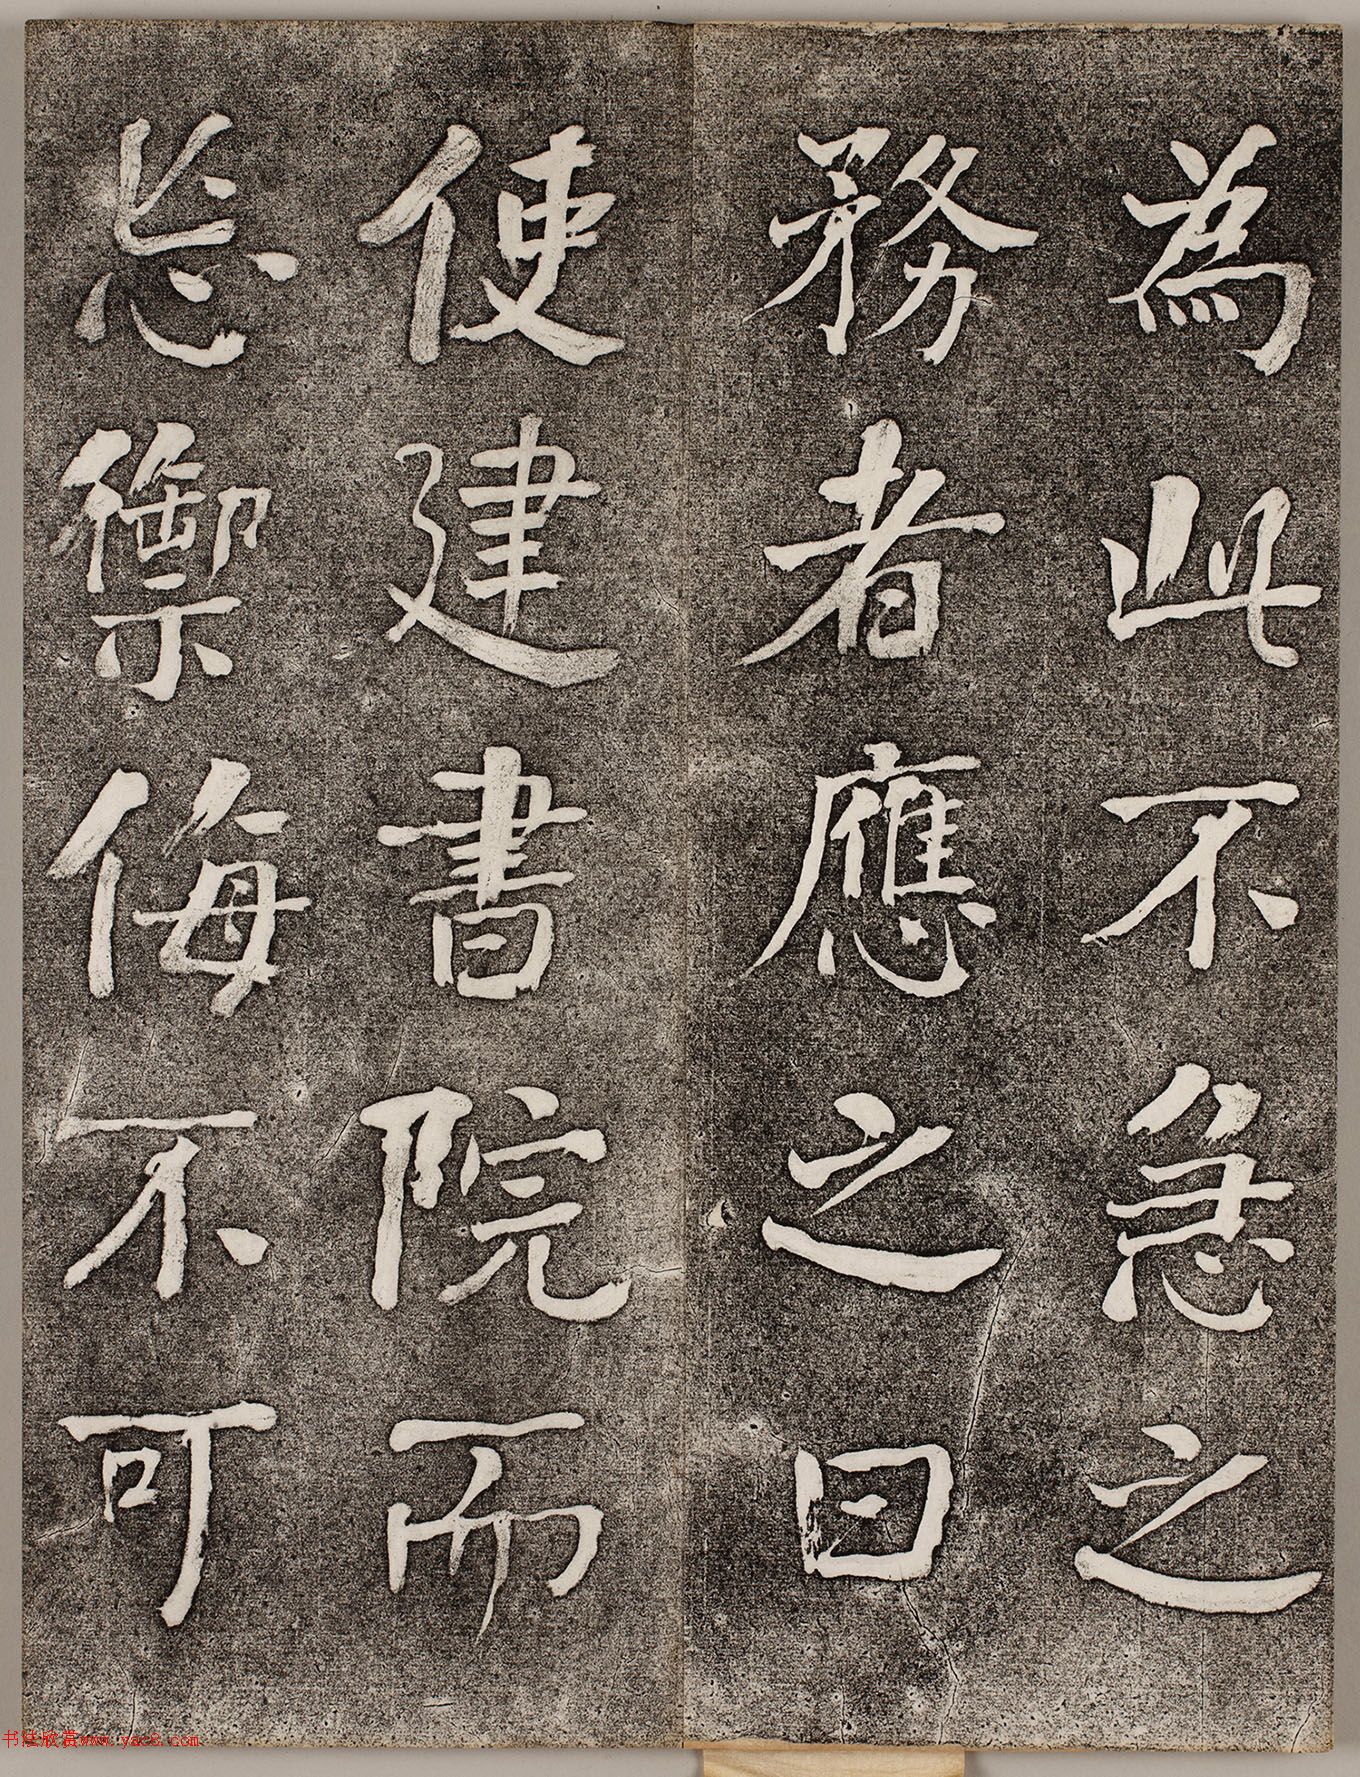 為此不急之
務者應之曰
使建書院而
忘禦侮不可
书法欣赏www.yac8.com